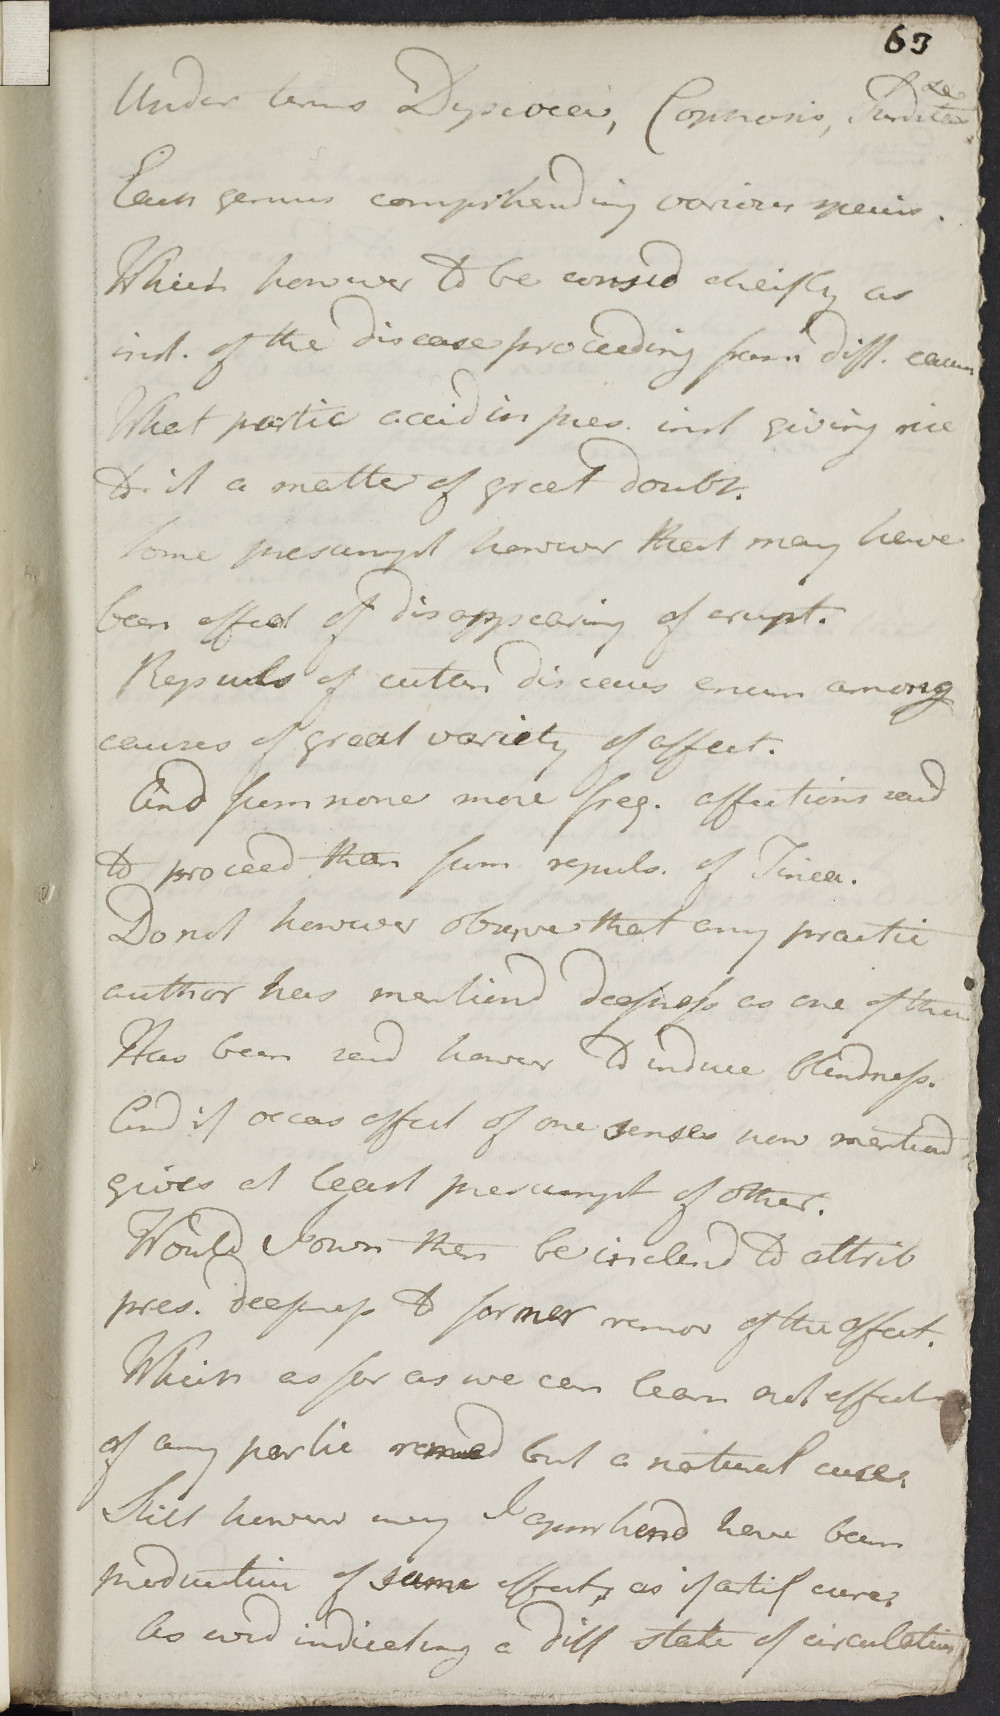 63
Under terms Dysecoeia, Cophosis, Surditas
Each genus comprehending various species.
Which however to be consid cheifly as
inst. of the disease proceeding from diff. causes
What partic accid in pres. inst giving rise
to it a matter of great doubt.
Some presumpt however that may have
been effect of disappearing of erupt.
Repuls of cutan diseases enum among
causes of great variety of affect.
And from none more freq. affections said
to proceed than from repuls. of Tinea.
Do not however observe that any practic
author has mentiond deafness as one of them
Has been said howevr to induce blindness.
And if occas effect of one senses now mentiond
gives at least presumpt of other.
Would I own then be inclend to attrib
pres. deafness to former remov of the affect.
Which as far as we can learn not effect
of any partic remed but a natural cure.
Still however may I apprehend have been
productive of same effects as if artif cure.
As coud indicating a diff state of circulation